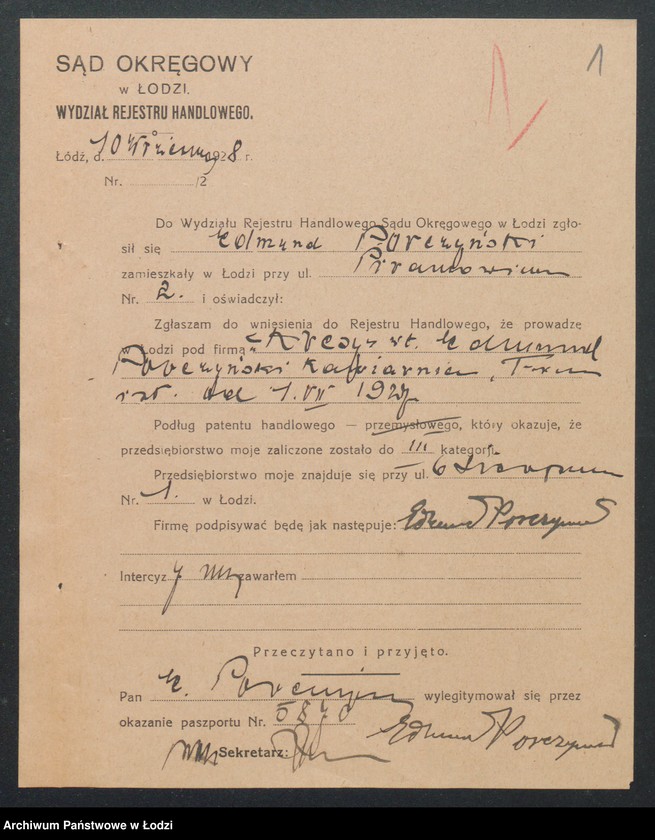 SĄD OKRĘGOWY
w ŁODZI.
WYDZIAŁ REJESTRU HANDLOWEGO.
1
Łódź, d. 10 1928 r.
Nr. /2
Do Wydziału Rejestru Handlowego Sądu Okręgowego w Łodzi zgło-
sił się Edmund Porczyński
zamieszkały w Łodzi przy ul.
Nr. 2. i oświadczył:
Zgłaszam do wniesienia do Rejestru Handlowego, że prowadzę
w Łodzi pod firmą Edmund
Porczyński Kawiarnia
od 1.VII
Podług patentu handlowego — przemysłowego, który okazuje, że
przedsiębiorstwo moje zaliczone zostało do III kategorji.
Przedsiębiorstwo moje znajduje się przy ul.
Nr. 1. w Łodzi.
Firmę podpisywać będę jak następuje: Edmund Porczyński
Intercyzy nie zawarłem
Przeczytano i przyjęto.
Pan E. Porczyński wylegitymował się przez
okazanie paszportu Nr. 5870
Edmund Porczyński
Sekretarz:
Archiwum Państwowe w Łodzi